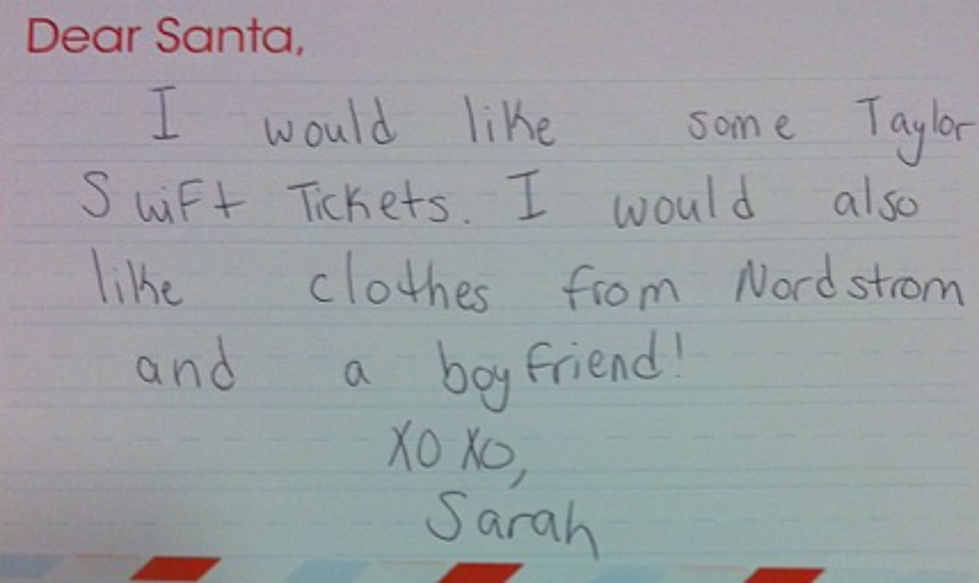 Dear Santa,
I would like some Taylor
Swift Tickets. I would also
like clothes from Nordstrom
and a boyfriend!
XO XO,
Sarah